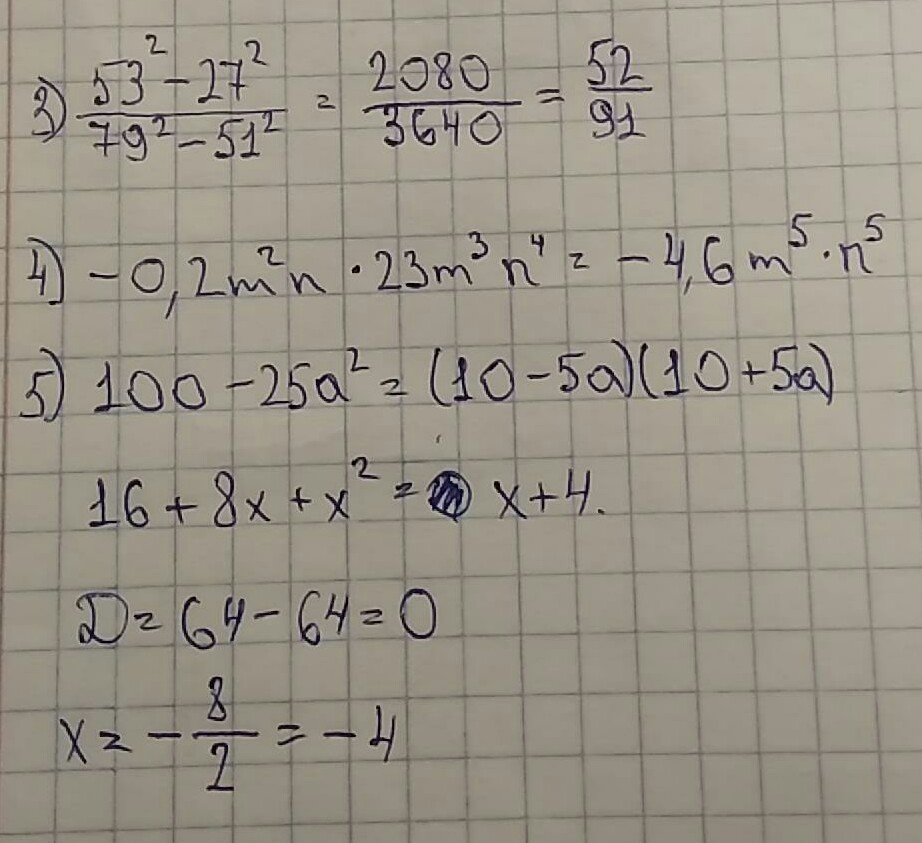 3) (53² - 27²)/(79² - 51²) = 2080/3640 = 52/91
4) -0,2m²n · 23m³n⁴ = -4,6m⁵·n⁵
5) 100 - 25a² = (10 - 5a)(10 + 5a)
16 + 8x + x² = x + 4.
D = 64 - 64 = 0
x = - 8/2 = - 4